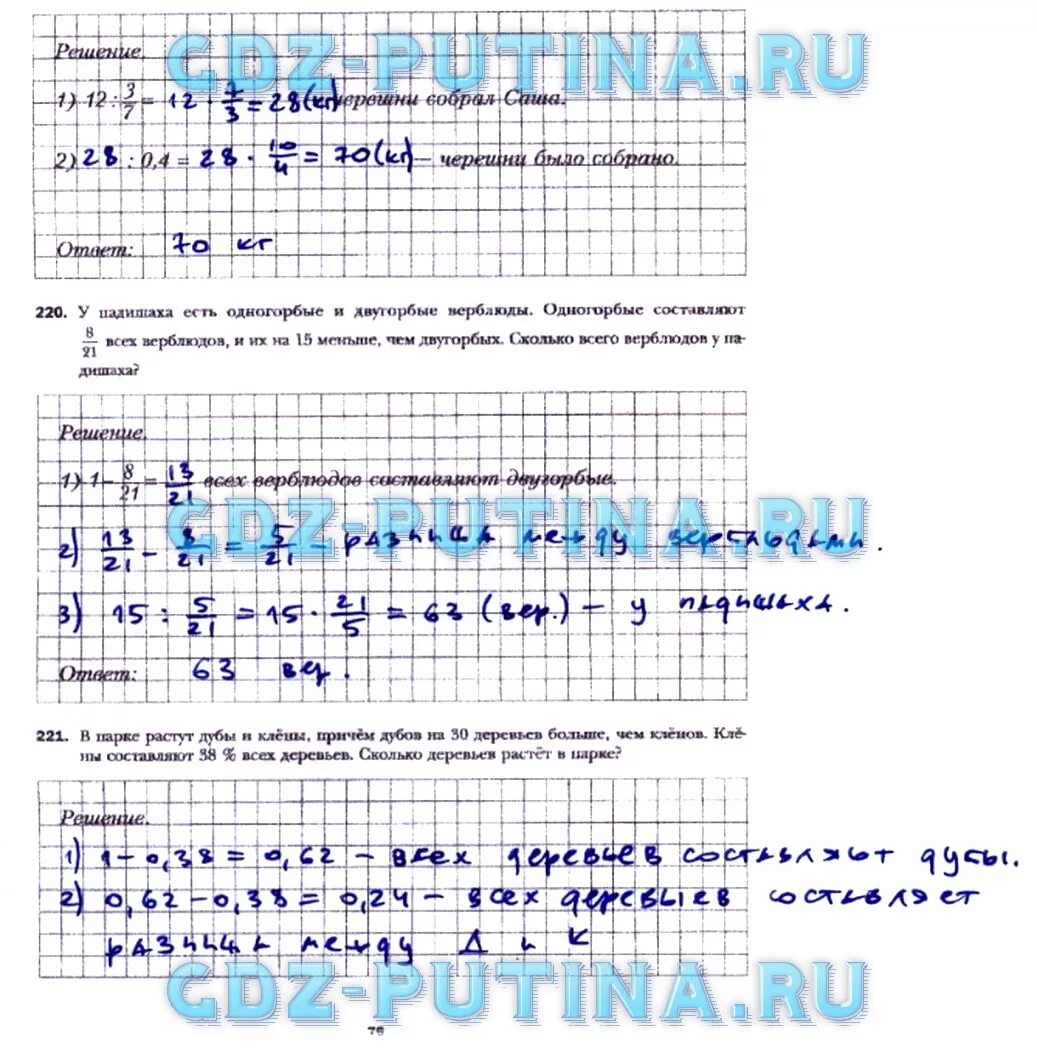 GDZ-PUTINA.RU
Решение.
1) 12 : 3/7 = 12 · 7/3 = 28 (кг) черешни собрал Саша.
2) 28 : 0,4 = 28 · 10/4 = 70 (кг) – черешни было собрано.
Ответ: 70 кг
220. У падишаха есть одногорбые и двугорбые верблюды. Одногорбые составляют
8/21 всех верблюдов, и их на 15 меньше, чем двугорбых. Сколько всего верблюдов у па-
дишаха?
Решение.
1) 1 – 8/21 = 13/21 всех верблюдов составляют двугорбые.
GDZ-PUTINA.RU
2) 13/21 - 8/21 = 5/21 - разница между верблюдами.
3) 15 : 5/21 = 15 · 21/5 = 63 (вер.) – у падишаха.
Ответ: 63 вер.
221. В парке растут дубы и клёны, причём дубов на 30 деревьев больше, чем клёнов. Клё-
ны составляют 38 % всех деревьев. Сколько деревьев растёт в парке?
Решение.
1) 1 – 0,38 = 0,62 – всех деревьев составляют дубы.
2) 0,62 – 0,38 = 0,24 – всех деревьев составляет
разница между Д и К
GDZ-PUTINA.RU
76